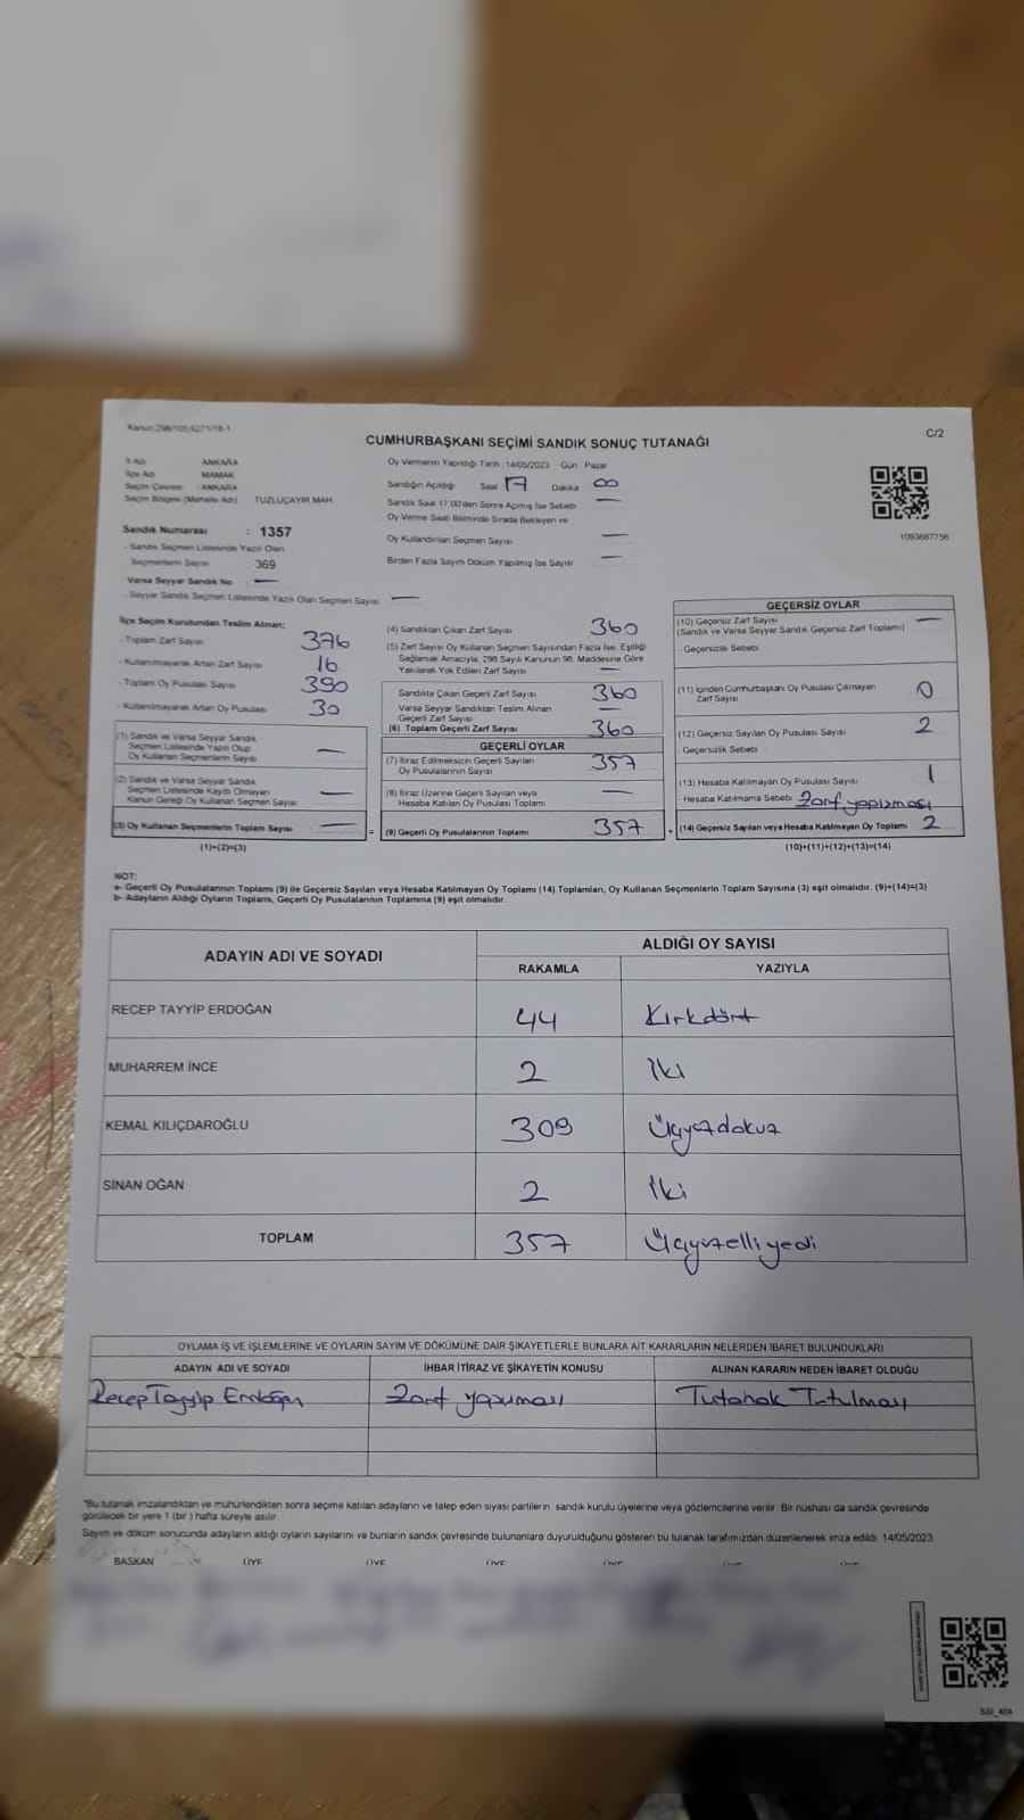 Kanun:298/105,6271/18-1
C/2
CUMHURBAŞKANI SEÇİMİ SANDIK SONUÇ TUTANAĞI
İl Adı ANKARA
İlçe Adı MAMAK
Seçim Çevresi ANKARA
Seçim Bölgesi (Mahalle Adı) TUZLUÇAYIR MAH.
Sandık Numarası : 1357
- Sandık Seçmen Listesinde Yazılı Olan
Seçmenlerin Sayısı 369
Varsa Seyyar Sandık No —
- Seyyar Sandık Seçmen Listesinde Yazılı Olan Seçmen Sayısı —
Oy Vermenin Yapıldığı Tarih :14/05/2023 Gün Pazar
Sandığın Açıldığı Saat 17 Dakika 00
Sandık Saat 17.00'den Sonra Açılmış İse Sebebi —
Oy Verme Saati Bitiminde Sırada Bekleyen ve
Oy Kullandırılan Seçmen Sayısı —
Birden Fazla Sayım Döküm Yapılmış İse Sayısı —
1093687756
İlçe Seçim Kurulundan Teslim Alınan;
- Toplam Zarf Sayısı 376
- Kullanılmayarak Artan Zarf Sayısı 16
- Toplam Oy Pusulası Sayısı 390
- Kullanılmayarak Artan Oy Pusulası 30
(1) Sandık ve Varsa Seyyar Sandık
Seçmen Listesinde Yazılı Olup
Oy Kullanan Seçmenlerin Sayısı —
(2) Sandık ve Varsa Seyyar Sandık
Seçmen Listesinde Kayıtlı Olmayan
Kanun Gereği Oy Kullanan Seçmen Sayısı —
(3) Oy Kullanan Seçmenlerin Toplam Sayısı —
(1)+(2)=(3)
(4) Sandıktan Çıkan Zarf Sayısı 360
(5) Zarf Sayısı Oy Kullanan Seçmen Sayısından Fazla İse, Eşitliği
Sağlamak Amacıyla, 298 Sayılı Kanunun 98. Maddesine Göre
Yakılarak Yok Edilen Zarf Sayısı —
Sandıkta Çıkan Geçerli Zarf Sayısı 360
Varsa Seyyar Sandıktan Teslim Alınan
Geçerli Zarf Sayısı —
(6) Toplam Geçerli Zarf Sayısı 360
GEÇERLİ OYLAR
(7) İtiraz Edilmeksizin Geçerli Sayılan
Oy Pusulalarının Sayısı 357
(8) İtiraz Üzerine Geçerli Sayılan veya
Hesaba Katılan Oy Pusulası Toplamı —
= (9) Geçerli Oy Pusulalarının Toplamı 357
GEÇERSİZ OYLAR
(10) Geçersiz Zarf Sayısı —
(Sandık ve Varsa Seyyar Sandık Geçersiz Zarf Toplamı)
Geçersizlik Sebebi
(11) İçinden Cumhurbaşkanı Oy Pusulası Çıkmayan
Zarf Sayısı 0
(12) Geçersiz Sayılan Oy Pusulası Sayısı 2
Geçersizlik Sebebi
(13) Hesaba Katılmayan Oy Pusulası Sayısı 1
Hesaba Katılmama Sebebi Zarf yapışması
+ (14) Geçersiz Sayılan veya Hesaba Katılmayan Oy Toplamı 2
(10)+(11)+(12)+(13)=(14)
NOT:
a- Geçerli Oy Pusulalarının Toplamı (9) ile Geçersiz Sayılan veya Hesaba Katılmayan Oy Toplamı (14) Toplamları, Oy Kullanan Seçmenlerin Toplam Sayısına (3) eşit olmalıdır. (9)+(14)=(3)
b- Adayların Aldığı Oyların Toplamı, Geçerli Oy Pusulalarının Toplamına (9) eşit olmalıdır.
ADAYIN ADI VE SOYADI ALDIĞI OY SAYISI
RAKAMLA YAZIYLA
RECEP TAYYİP ERDOĞAN 44 Kırkdört
MUHARREM İNCE 2 İki
KEMAL KILIÇDAROĞLU 309 Üçyüzdokuz
SİNAN OĞAN 2 İki
TOPLAM 357 Üçyüzelliyedi
OYLAMA İŞ VE İŞLEMLERİNE VE OYLARIN SAYIM VE DÖKÜMÜNE DAİR ŞİKAYETLERLE BUNLARA AİT KARARLARIN NELERDEN İBARET BULUNDUKLARI
ADAYIN ADI VE SOYADI İHBAR İTİRAZ VE ŞİKAYETİN KONUSU ALINAN KARARIN NEDEN İBARET OLDUĞU
Recep Tayyip Erdoğan Zarf yapışması Tutanak Tutulması
*Bu tutanak imzalandıktan ve mühürlendikten sonra seçime katılan adayların ve talep eden siyasi partilerin sandık kurulu üyelerine veya gözlemcilerine verilir. Bir nüshası da sandık çevresinde
görülecek bir yere 1 (bir) hafta süreyle asılır.
Sayım ve döküm sonucunda adayların aldığı oyların sayılarını ve bunların sandık çevresinde bulunanlara duyurulduğunu gösteren bu tutanak tarafımızdan düzenlenerek imza edildi. 14/05/2023
BAŞKAN ÜYE ÜYE ÜYE